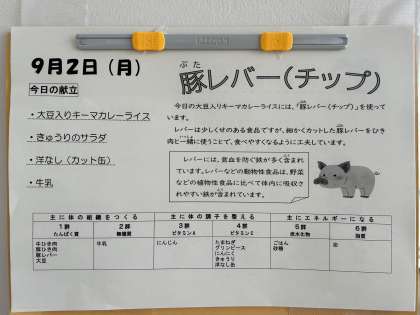 9月2日(月)
今日の献立
・大豆入りキーマカレーライス
・きゅうりのサラダ
・洋なし(カット缶)
・牛乳
ぶた
豚レバー(チップ)
今日の大豆入りキーマカレーライスには、「豚レバー(チップ)」を使って
います。
レバーは少しくせのある食品ですが、細かくカットした豚レバーをひき
肉と一緒に使うことで、食べやすくなるように工夫しています。
レバーには、貧血を防ぐ鉄が多く含まれ
ています。レバーなどの動物性食品は、野菜
などの植物性食品に比べて体内に吸収さ
れやすい鉄が含まれています。
主に体の組織をつくる 主に体の調子を整える 主にエネルギーになる
1群 2群 3群 4群 5群 6群
たんぱく質 無機質 ビタミンA ビタミンC 炭水化物 脂質
牛ひき肉 牛乳 にんじん たまねぎ ごはん 油
豚ひき肉 グリンピース 砂糖
豚レバー にんにく
大豆 きゅうり
洋なし缶